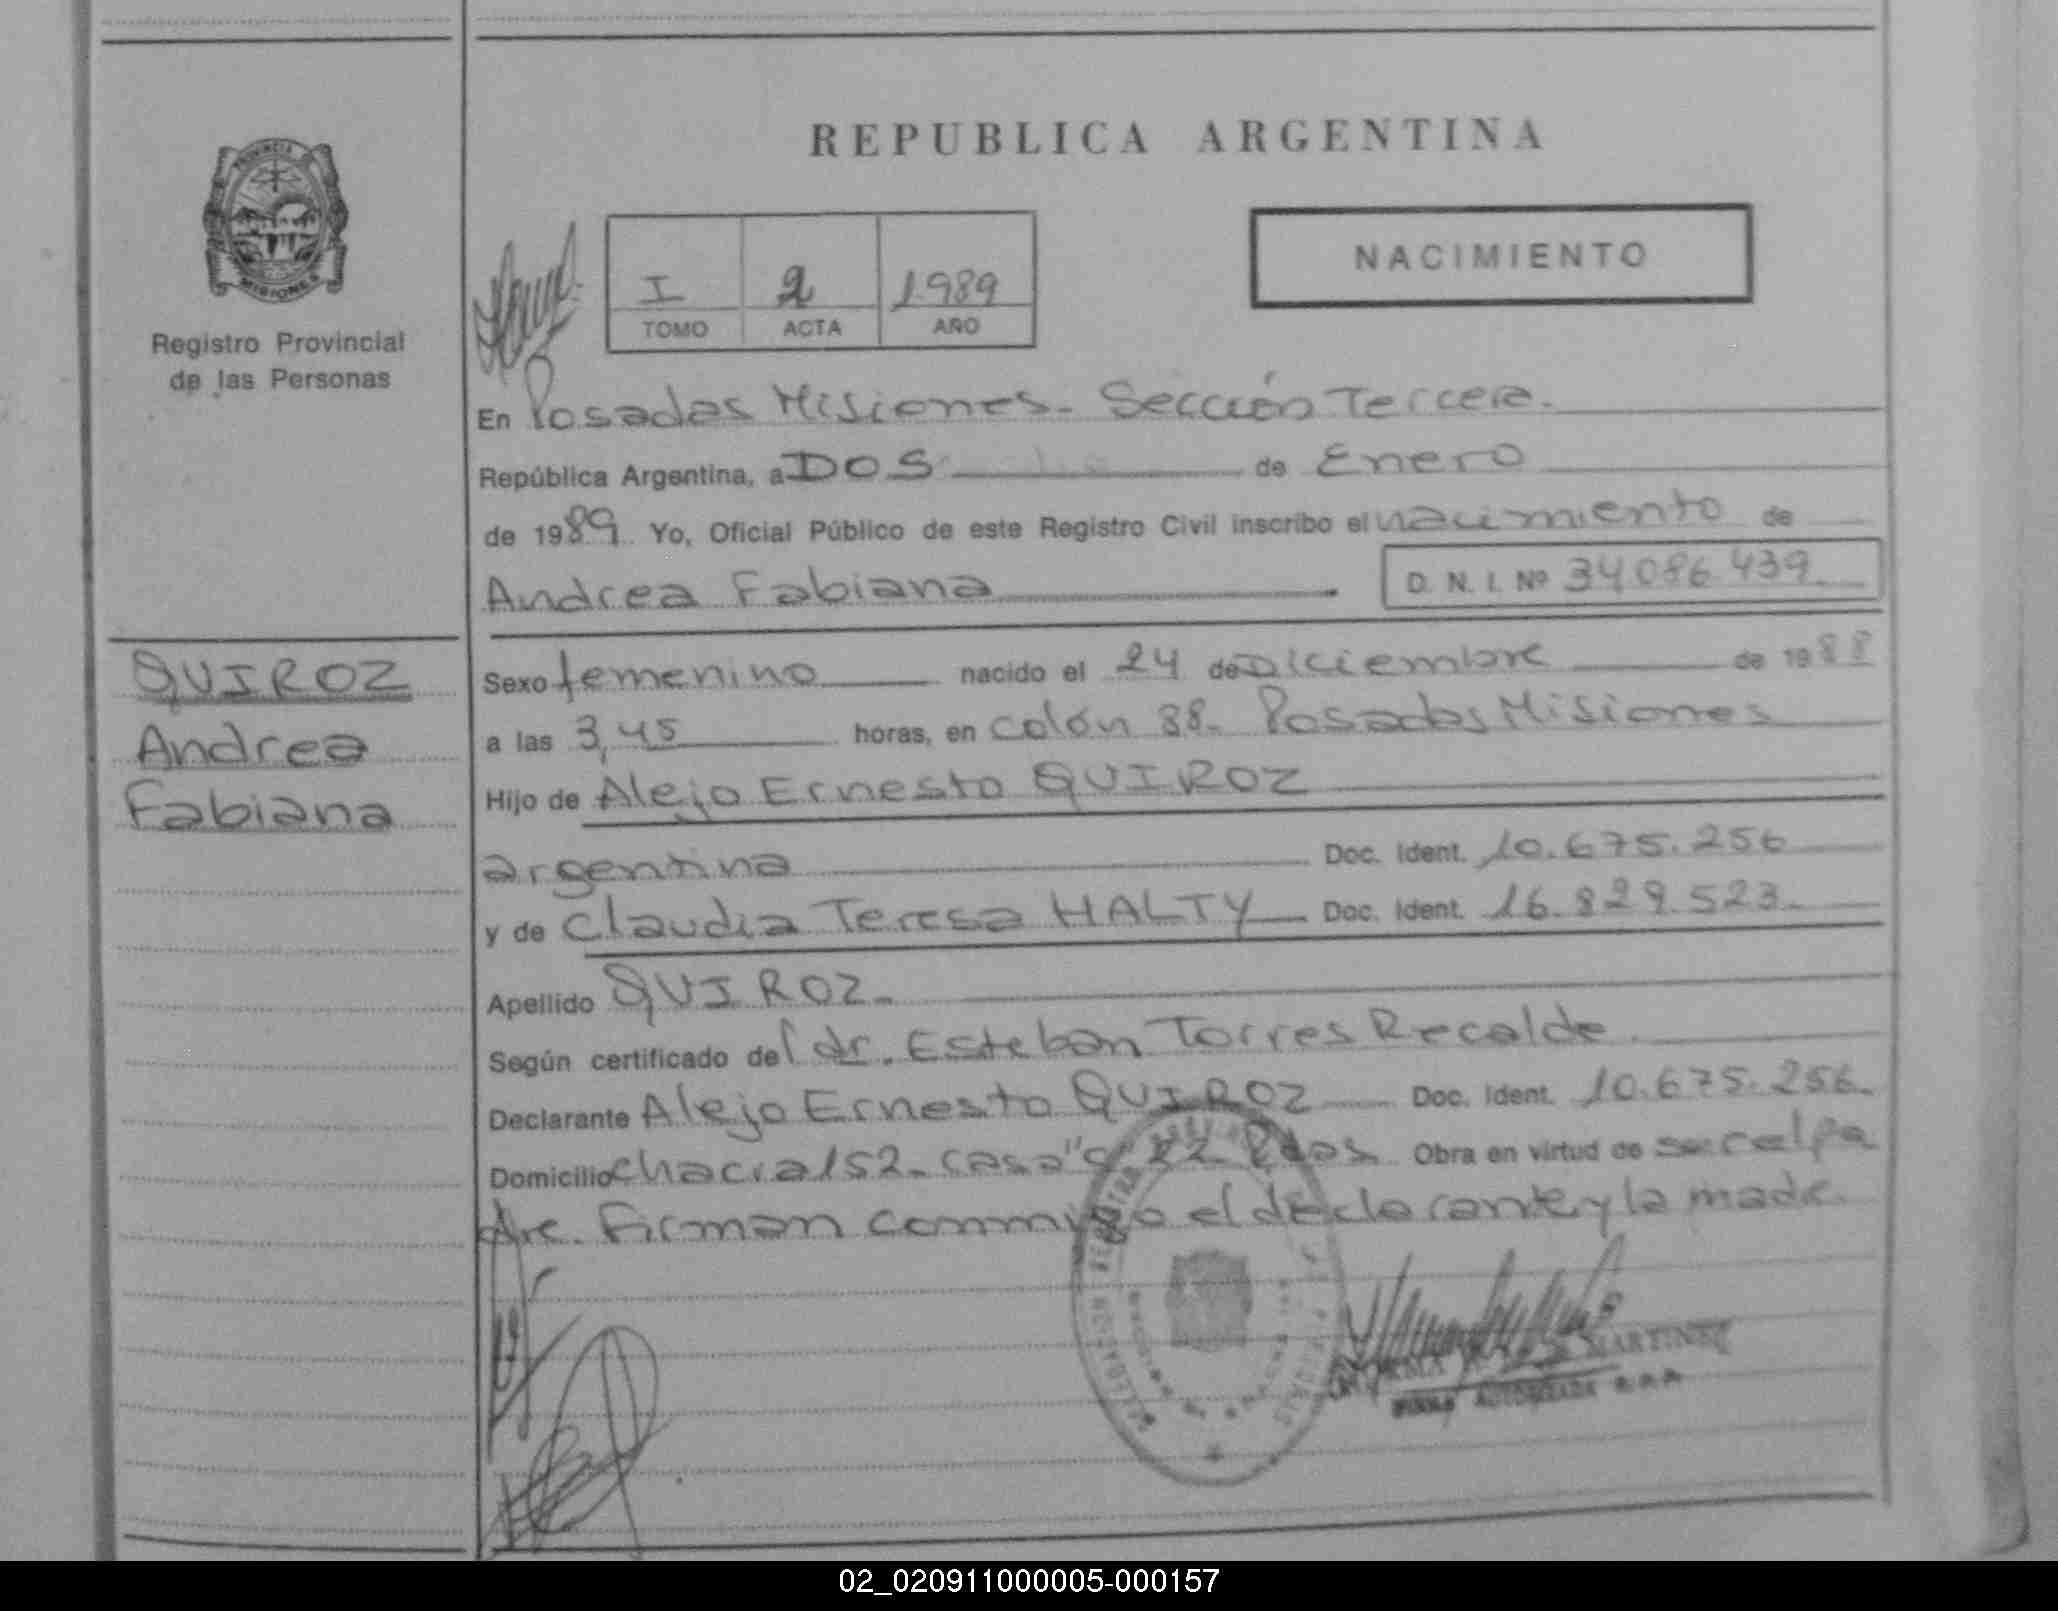 REPUBLICA ARGENTINA
PROVINCIA
MISIONES
Registro Provincial
de las Personas
I 2 1989
TOMO ACTA AÑO
NACIMIENTO
En Posadas Misiones. Sección Tercera.
República Argentina, a DOS de Enero
de 1989. Yo, Oficial Público de este Registro Civil inscribo el nacimiento de
Andrea Fabiana D. N. I. Nº 34086439
QUIROZ
Andrea
Fabiana
Sexo femenino nacido el 24 de Diciembre de 1988
a las 3,45 horas, en colón 88. Posadas Misiones
Hijo de Alejo Ernesto QUIROZ
argentina Doc. Ident. 10.675.256
y de Claudia Teresa HALTY Doc. Ident. 16.829.523.
Apellido QUIROZ.
Según certificado del dr. Esteban Torres Recalde
Declarante Alejo Ernesto QUIROZ Doc. Ident. 10.675.256.
Domicilio chacra 152. casa Pdas Obra en virtud de ser el pa
dre. Firman conmigo el declarante y la madre.
MARTINEZ
AUTORIZADA
02_020911000005-000157